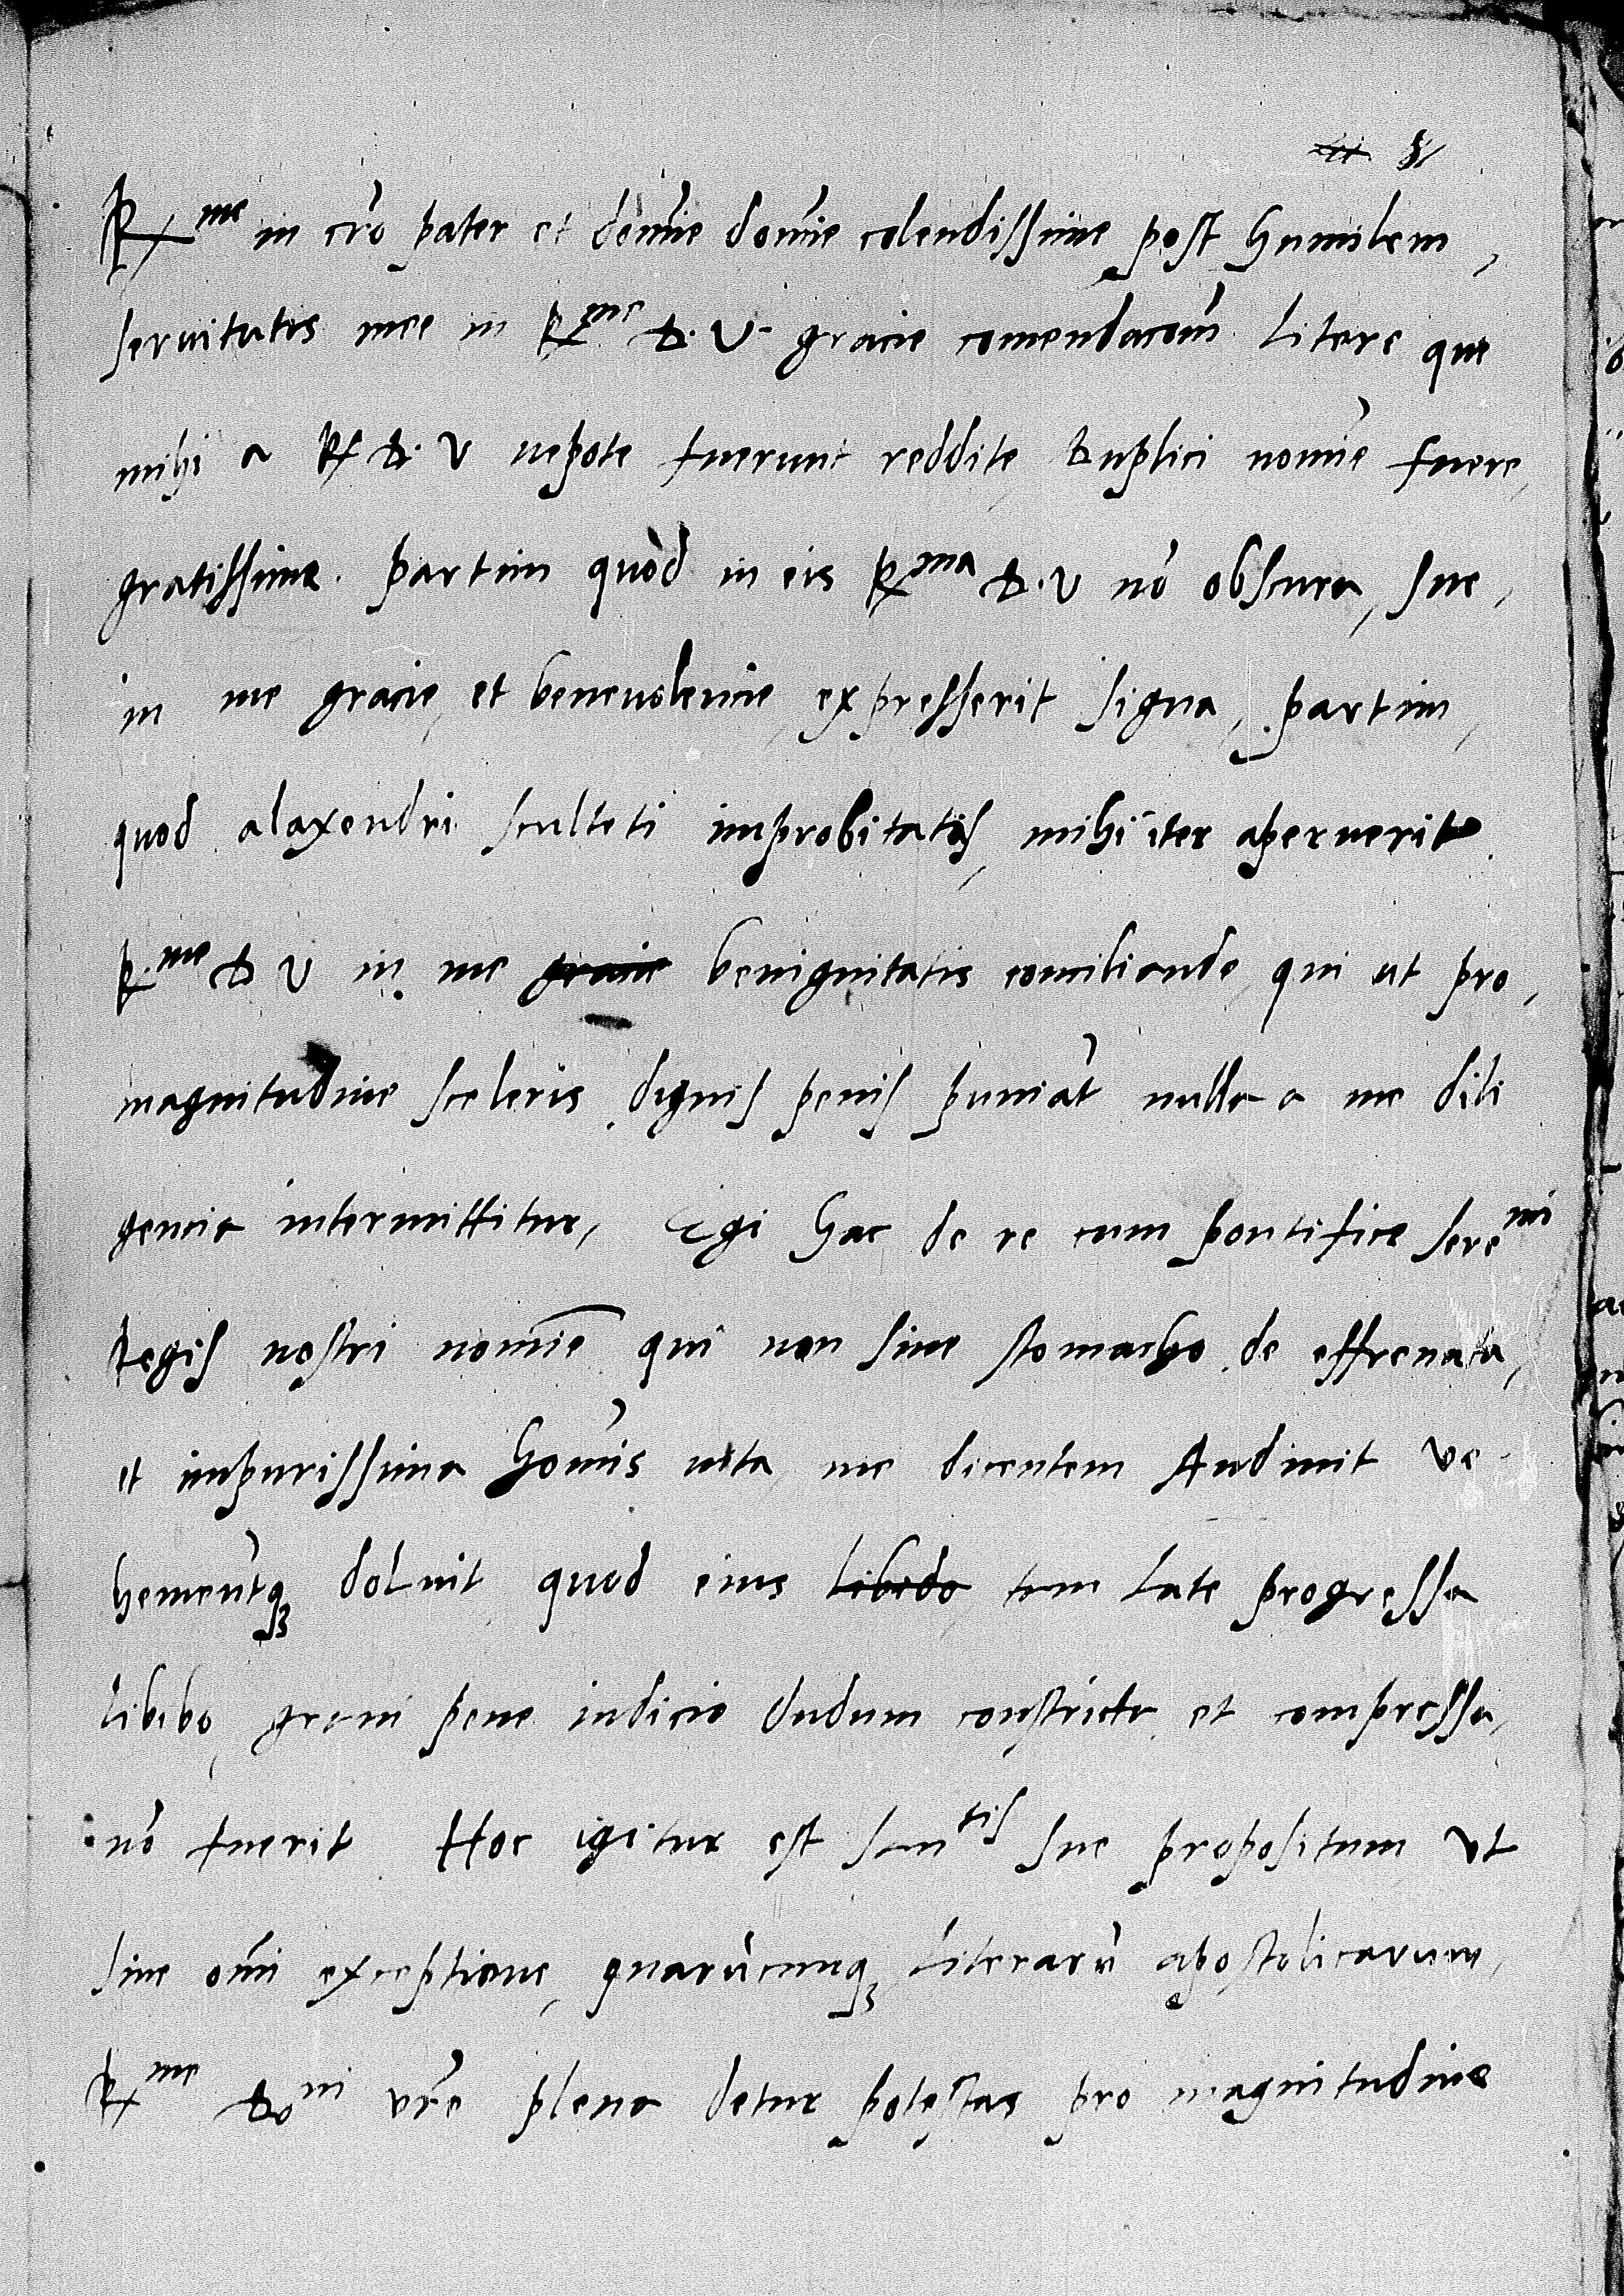 R^me in cr̄o pater et domīe domīe colendissime post humilem,
seruitutis mee in R^me D. V. gracie comendacōm litere que
mihi a R D. V nepote fuerunt reddite, duplici nomīe fuere,
gratissime. partim quòd in eis R^ma D. V nō obscura, sue,
in me gracie, et beneuolencie, expresserit signa, partim,
quod alaxendri sculteti improbitatis, mihi iter aperuerit
R^me D V in me benignitatis conciliande, qui ut pro,
magnitudine sceleris dignis penis puniāt nulla a me dili
gencia intermittitur, Egi hac de re cum pontifice sere^mi
Regis nostri nomīe qui non sine stomacho de effrenata,
et impurissima homīs uita me dicentem Audiuit ve
hementq3 doluit quod eius libido tam late progressa
libibo, graui pene iudicio dudum constricta et compressa,
nō fuerit Hoc igitur est san^tis sue propositum vt
sine omī exceptione, quarūcunq3 literarū apostolicarum,
R^me Do^ni vr̄e plena detur potestas pro magnitudine